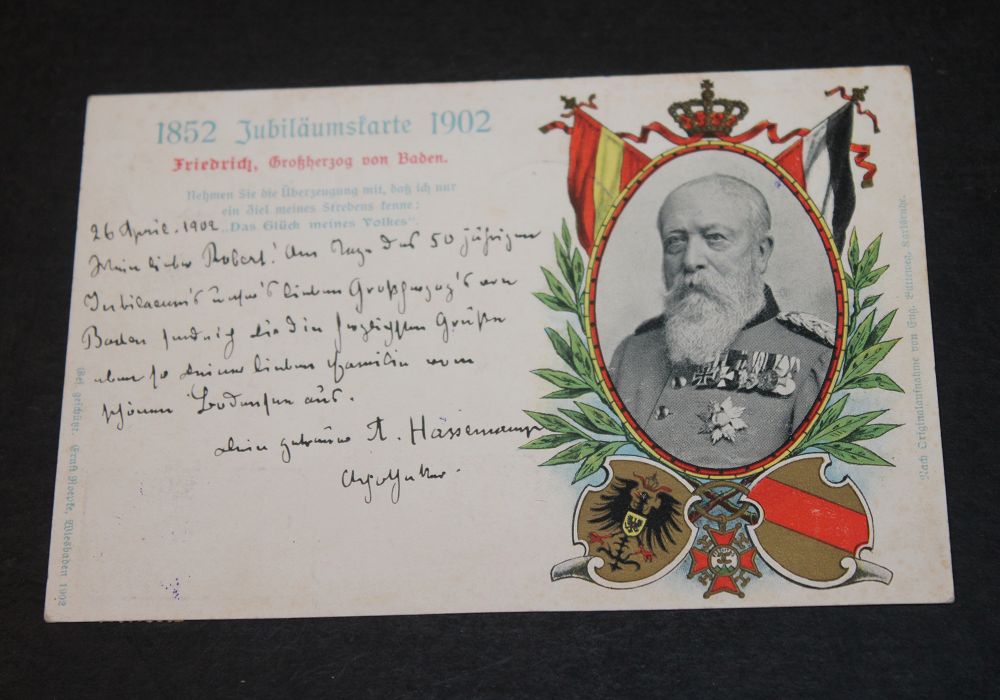 1852 Jubiläumskarte 1902
Friedrich, Großherzog von Baden.
Nehmen Sie die Überzeugung mit, daß ich nur
ein Ziel meines Strebens kenne:
„Das Glück meines Volkes".
26 April. 1902
Mein lieber Robert! Am Tage des 50 jährigen
Jubilaeum's lieben Großherzog's von
Baden die herzlichsten Grüße
lieben Familie vom
schönen Bodensee aus.
Dein A.
Nach Originalaufnahme von Karlsruhe.
Ges. geschützt. Wiesbaden 1902